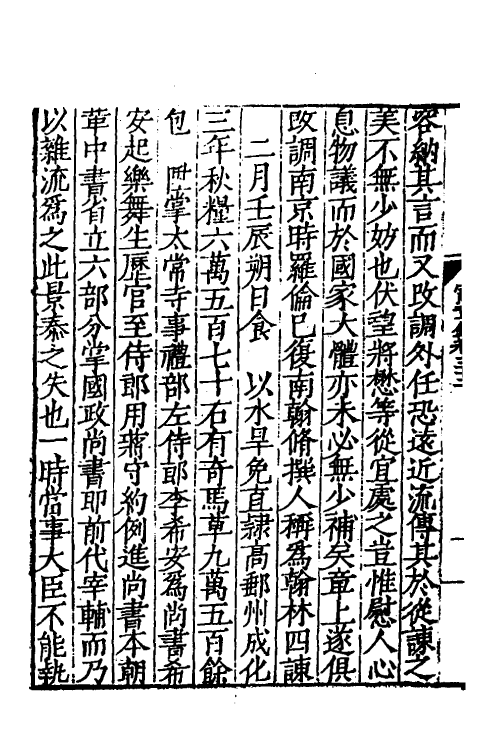 容納其言而又改調外任恐遠近流傳其於從諫之
美不無少妨也伏望將懋等從宜處之豈惟慰人心
息物議而於國家大體亦未必無少補矣章上遂俱
改調南京時羅倫已復南翰脩撰人稱為翰林四諫
二月壬辰朔日食　以水旱免直隷髙郵州成化
三年秋糧六萬五百七十石有奇馬草九萬五百餘
包　　掌太常寺事禮部左侍郎李希安為尚書希
安起樂舞生歷官至侍郎用蔣守約例進尚書本朝
革中書省立六部分掌國政尚書即前代宰輔而乃
以雜流為之此景泰之失也一時當事大臣不能執